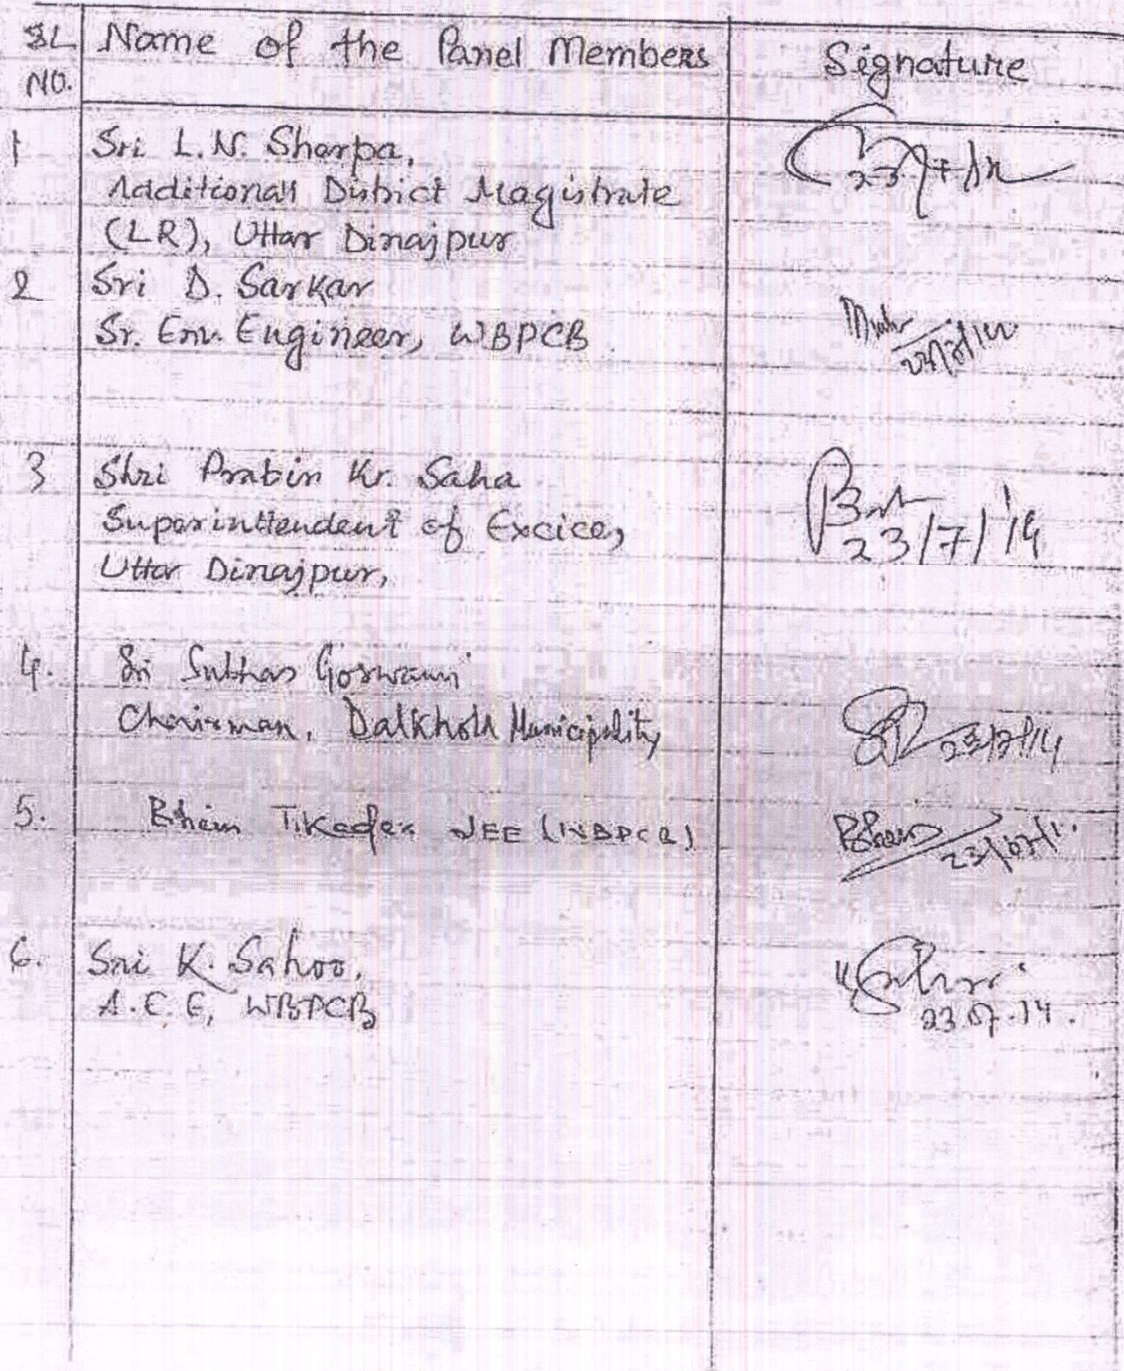 SL Name of the Panel Members Signature
NO.
1 Sri L.N. Sherpa,
Additional District Magistrate
(LR), Uttar Dinajpur
2 Sri D. Sarkar
Sr. Env. Engineer, WBPCB
3 Shri Prabir Kr. Saha
Superinttendent of Excice,
23/7/14
Uttar Dinajpur,
4. Sri Subhas Goswami
Chairman, Dalkhola Municipality
23/7/14
5. Bhim Tikader JEE (WBPCB)
23/07/1
6. Sri K. Sahoo,
A.E.E, WBPCB
23.07.14.